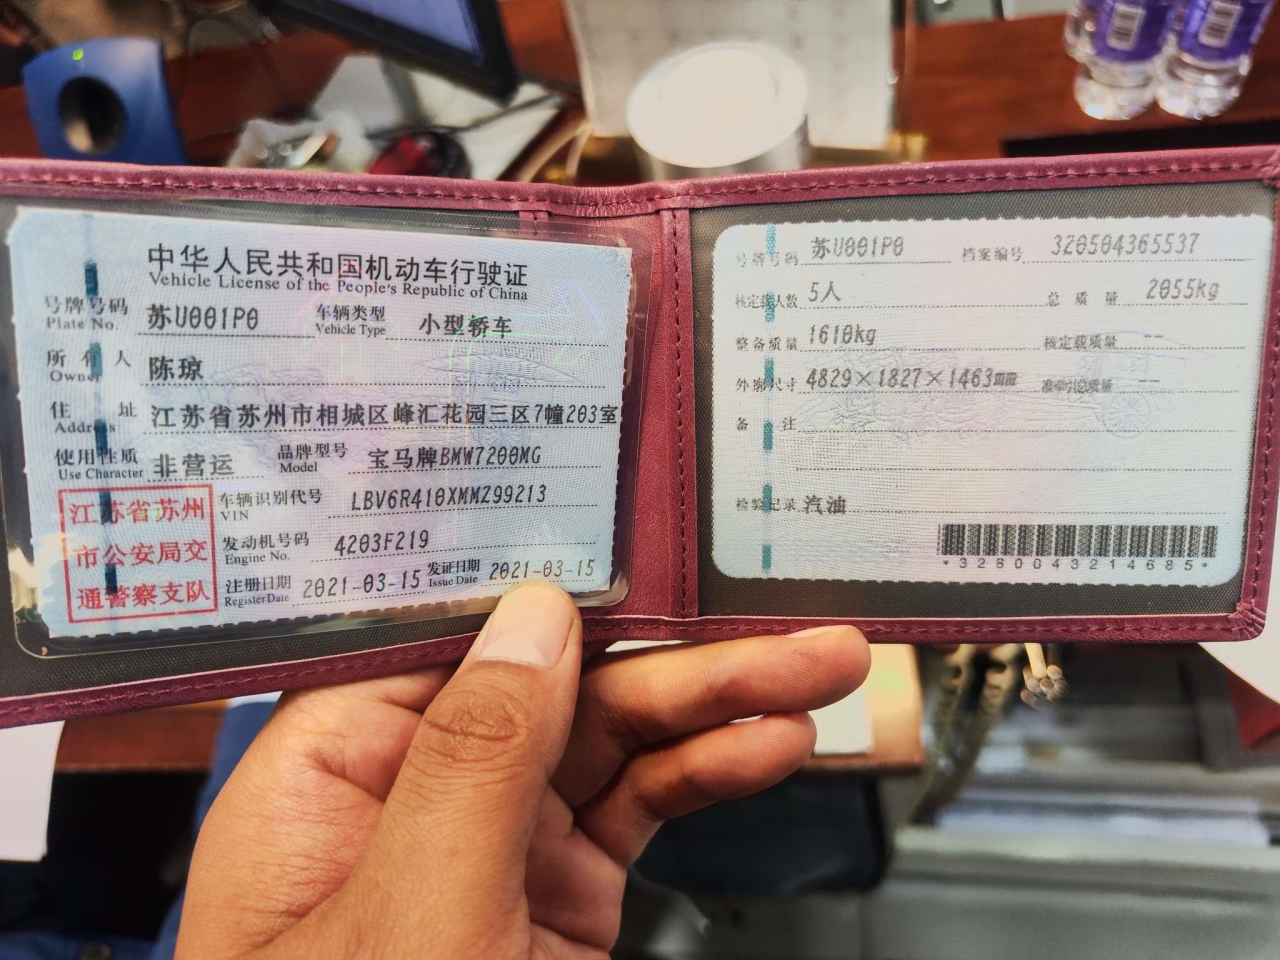 中华人民共和国机动车行驶证
Vehicle License of the People's Republic of China
号牌号码 苏U001P0 车辆类型 小型轿车
Plate No. Vehicle Type
所有人 陈琼
Owner
住址 江苏省苏州市相城区峰汇花园三区7幢203室
Address
使用性质 非营运 品牌型号 宝马牌BMW7200MG
Use Character Model
江苏省苏州市公安局交通警察支队
车辆识别代号 LBV6R410XMMZ99213
VIN
发动机号码 4203F219
Engine No.
注册日期 2021-03-15 发证日期 2021-03-15
Register Date Issue Date
号牌号码 苏U001P0 档案编号 320504365537
核定载人数 5人 总质量 2055kg
整备质量 1610kg 核定载质量 --
外廓尺寸 4829×1827×1463mm 准牵引总质量 --
备注
检验记录 汽油
*3280043214685*